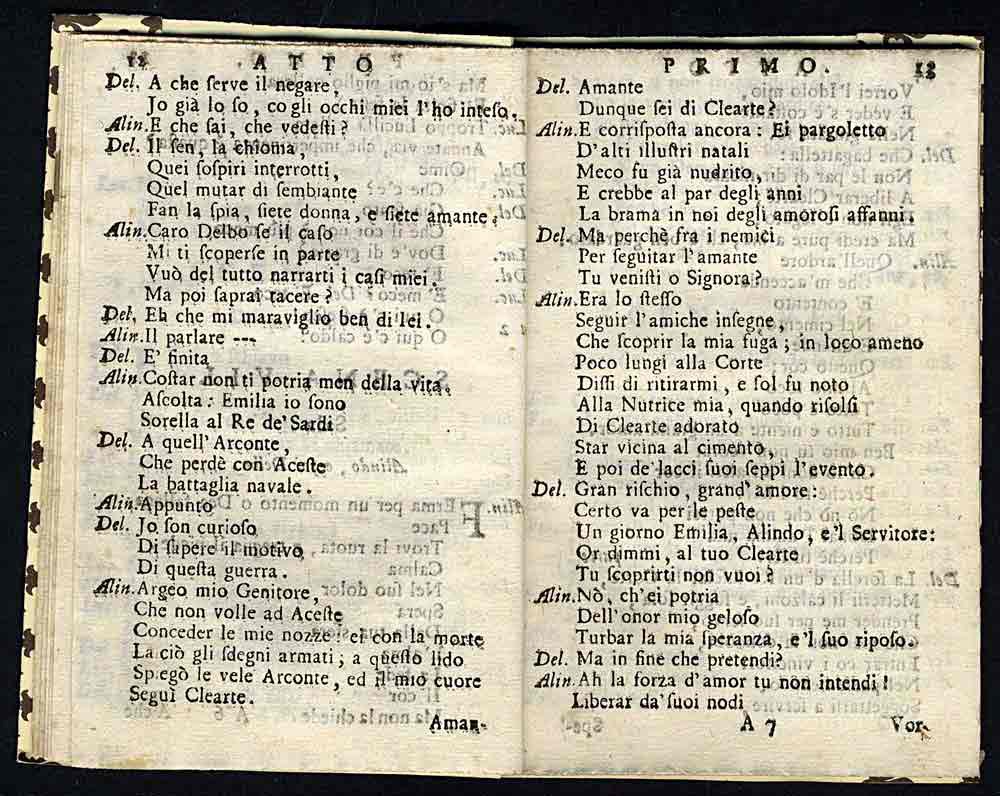 12 ATTO
Del. A che ſerve il negare,
Jo già lo ſo, co gli occhi miei l'ho inteſo.
Alin. E che ſai, che vedeſti?
Del. Il ſen, la chioma,
Quei ſoſpiri interrotti,
Quel mutar di ſembiante
Fan la ſpia, ſiete donna, e ſiete amante.
Alin. Caro Delbo ſe il caſo
Mi ti ſcoperſe in parte
Vuò del tutto narrarti i caſi miei.
Ma poi ſaprai tacere?
Del. Eh che mi maraviglio ben di lei.
Alin. Il parlare ---
Del. E' finita
Alin. Coſtar non ti potria men della vita.
Aſcolta: Emilia io ſono
Sorella al Re de' Sardi
Del. A quell' Arconte,
Che perdè con Aceſte
La battaglia navale.
Alin. Appunto
Del. Jo ſon curioſo
Di ſapere il motivo
Di queſta guerra.
Alin. Argeo mio Genitore,
Che non volle ad Aceſte
Conceder le mie nozze: ei con la morte
Laciò gli ſdegni armati; a queſto lido
Spiegò le vele Arconte, ed il mio cuore
Seguì Clearte.
Aman-
PRIMO. 13
Del. Amante
Dunque ſei di Clearte?
Alin. E corriſpoſta ancora: Ei pargoletto
D'alti illuſtri natali
Meco fu già nudrito,
E crebbe al par degli anni
La brama in noi degli amoroſi affanni.
Del. Ma perchè fra i nemici
Per ſeguitar l'amante
Tu veniſti o Signora?
Alin. Era lo ſteſſo
Seguir l'amiche inſegne,
Che ſcoprir la mia fuga; in loco ameno
Poco lungi alla Corte
Diſſi di ritirarmi, e ſol fu noto
Alla Nutrice mia, quando riſolſi
Di Clearte adorato
Star vicina al cimento,
E poi de' lacci ſuoi ſeppi l'evento.
Del. Gran riſchio, grand' amore:
Certo va per le peſte
Un giorno Emilia, Alindo, e 'l Servitore:
Or dimmi, al tuo Clearte
Tu ſcoprirti non vuoi?
Alin. Nò, ch'ei potria
Dell'onor mio geloſo
Turbar la mia ſperanza, e 'l ſuo ripoſo.
Del. Ma in fine che pretendi?
Alin. Ah la forza d'amor tu non intendi!
Liberar da' ſuoi nodi
A 7 Vor-